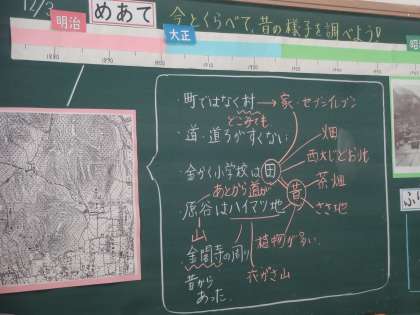 12/3
めあて
今とくらべて、昔の様子を調べよう!
明治
大正
昭
1880
1890
・町ではなく村→家・セブンイレブン
どこみても
・道・道ろがすくない
畑
西大じどおり
・金かく小学校は田
茶畑
あとから道が
昔
ささ地
原谷はハイマツ地
山
植物が多い
金閣寺の周り
衣がさ山
昔から
あった
ふり